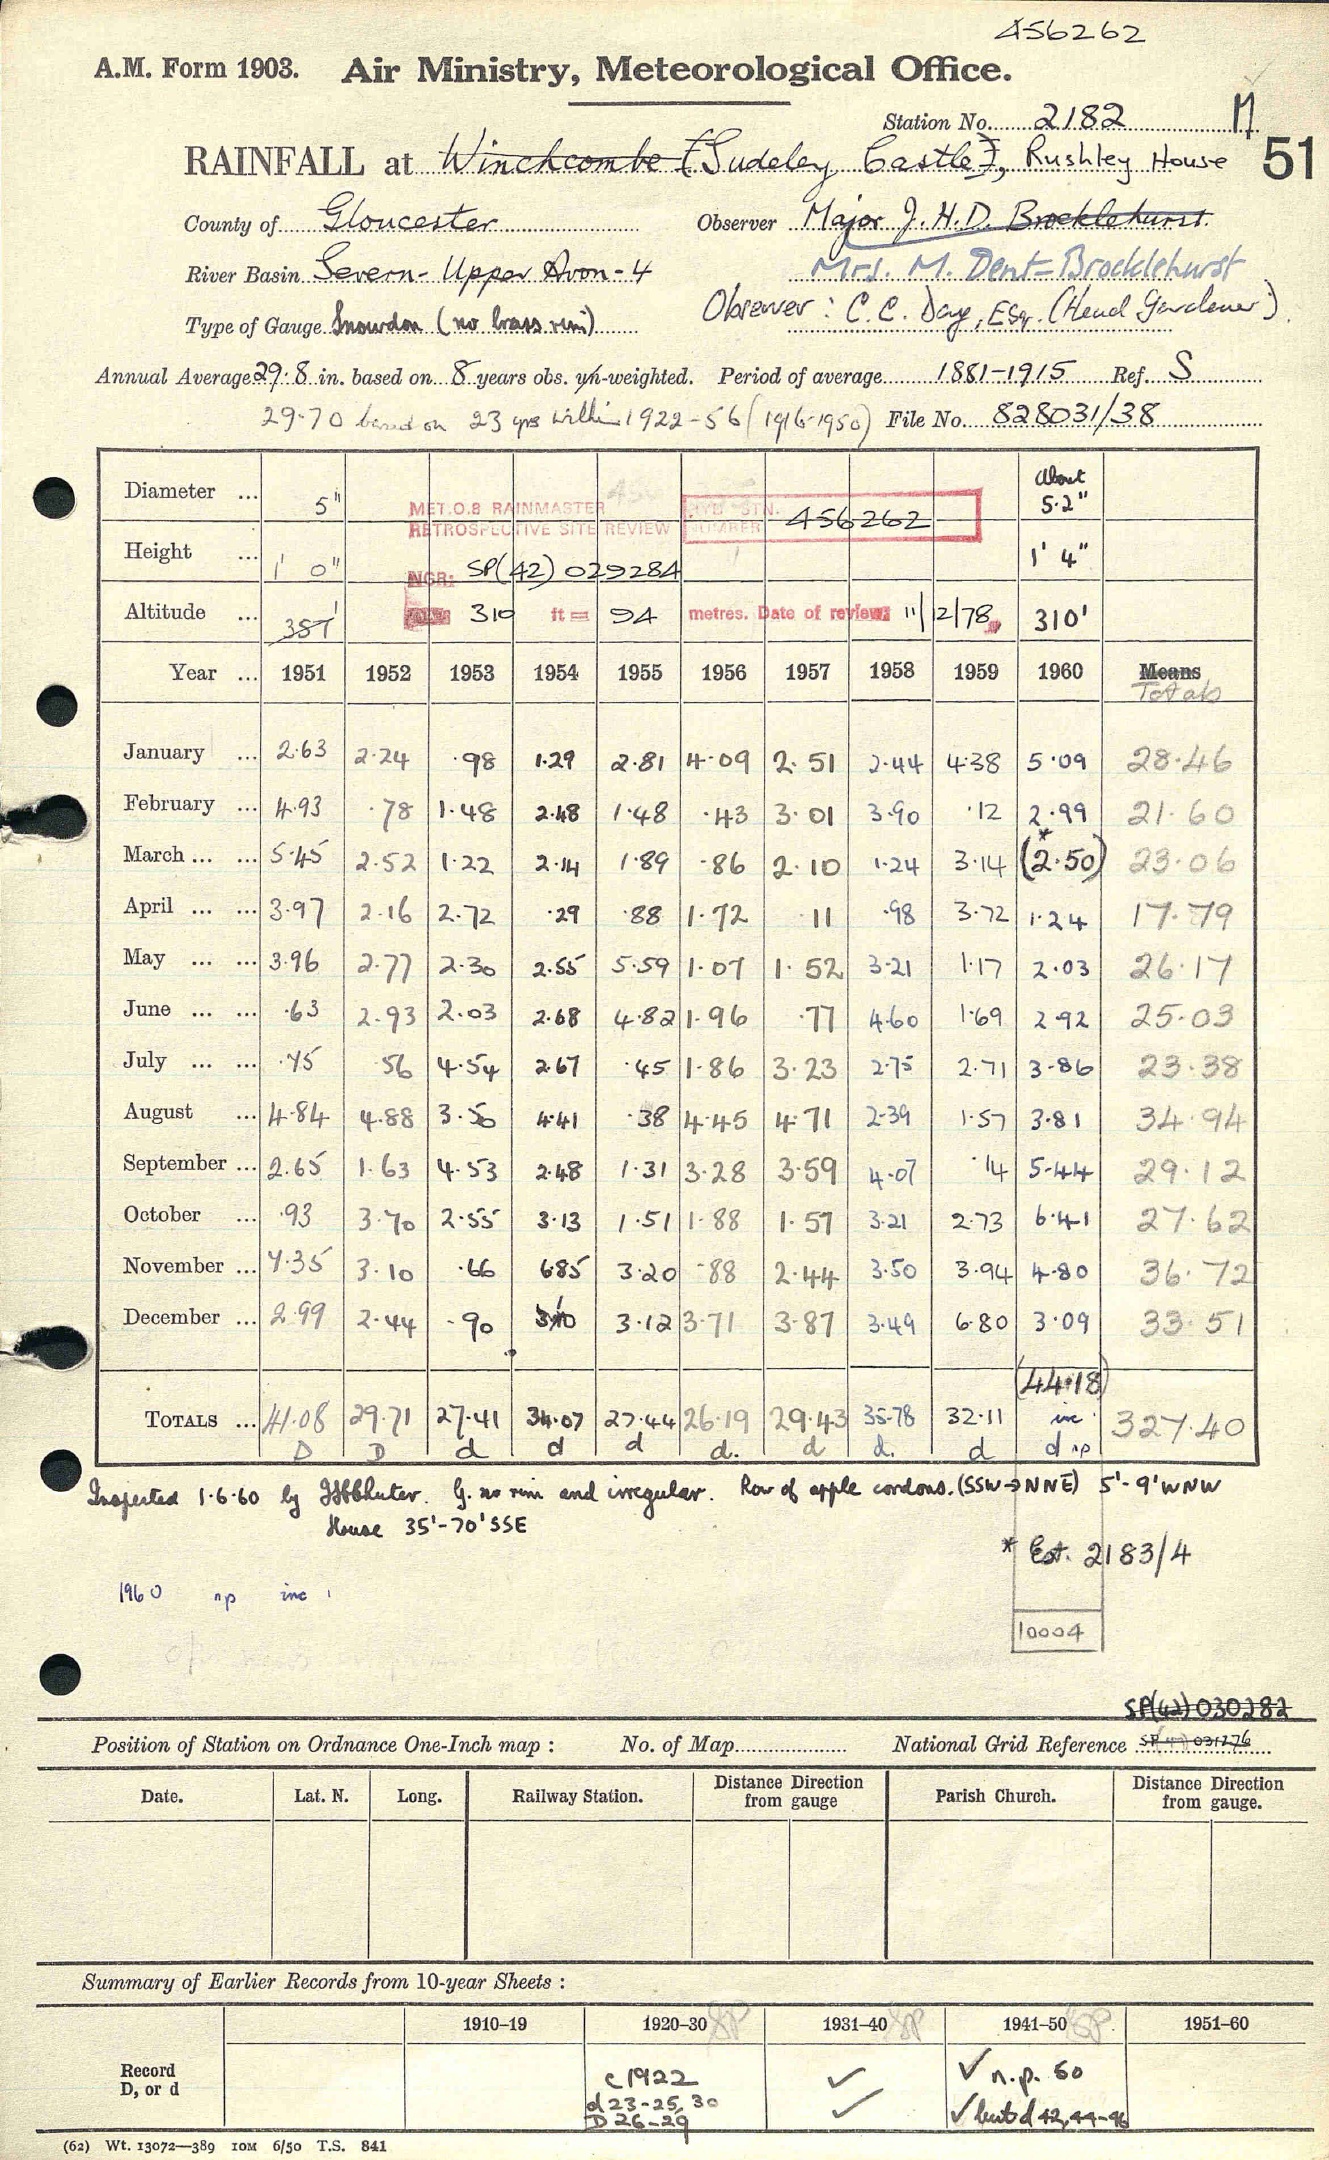 456262
A.M. Form 1903. Air Ministry, Meteorological Office.
Station No. 2182 M
RAINFALL at Winchcombe [Sudeley Castle], Rushley House 51
County of Gloucester Observer Major J. H. D. Brocklehurst.
River Basin Severn - Upper Avon - 4 Mrs. M. Dent-Brocklehurst
Type of Gauge Snowdon (no brass rim) Observer : C. C. Day, Esq. (Head Gardener)
Annual Average 29.8 in. based on 8 years obs. un-weighted. Period of average 1881-1915 Ref. S
29.70 based on 23 yrs within 1922-56 (1916-1950) File No. 828031/38
Diameter ... 5" About 5.2"
MET.O.8 RAINMASTER RETROSPECTIVE SITE REVIEW HYD. STN. NUMBER 456262
Height ... 1' 0" 1' 4"
NGR: SP(42) 029284
Altitude ... 387' 310 ft = 94 metres. Date of review 11/12/78 310'
Year ... 1951 1952 1953 1954 1955 1956 1957 1958 1959 1960 Means Totals
January ... 2.63 2.24 .98 1.29 2.81 4.09 2.51 2.44 4.38 5.09 28.46
February ... 4.93 .78 1.48 2.48 1.48 .43 3.01 3.90 .12 2.99 21.60
March ... ... 5.45 2.52 1.22 2.14 1.89 .86 2.10 1.24 3.14 (2.50)* 23.06
April ... ... 3.97 2.16 2.72 .29 .88 1.72 .11 .98 3.72 1.24 17.79
May ... ... 3.96 2.77 2.30 2.55 5.59 1.07 1.52 3.21 1.17 2.03 26.17
June ... ... .63 2.93 2.03 2.68 4.82 1.96 .77 4.60 1.69 2.92 25.03
July ... ... .75 .56 4.54 2.67 .45 1.86 3.23 2.75 2.71 3.86 23.38
August ... 4.84 4.88 3.50 4.41 .38 4.45 4.71 2.39 1.57 3.81 34.94
September ... 2.65 1.63 4.53 2.48 1.31 3.28 3.59 4.07 .14 5.44 29.12
October ... .93 3.70 2.55 3.13 1.51 1.88 1.57 3.21 2.73 6.41 27.62
November ... 7.35 3.10 .66 6.85 3.20 .88 2.44 3.50 3.94 4.80 36.72
December ... 2.99 2.44 .90 3.10 3.12 3.71 3.87 3.49 6.80 3.09 33.51
(44.18)
TOTALS ... 41.08 29.71 27.41 34.07 27.44 26.19 29.43 35.78 32.11 inc. 327.40
D D d d d d. d d. d d np
Inspected 1.6.60 by G. no rim and irregular. Row of apple cordons. (SSW→NNE) 5'-9' WNW
House 35'-70' SSE
* Est. 2183/4
1960 np inc
10004
SP(42) 030282
Position of Station on Ordnance One-Inch map : No. of Map National Grid Reference SP 031276
Date. Lat. N. Long. Railway Station. Distance Direction from gauge Parish Church. Distance Direction from gauge.
Summary of Earlier Records from 10-year Sheets :
1910-19 1920-30 SP 1931-40 SP 1941-50 SP 1951-60
Record D, or d
c 1922 ✓ ✓ n.p. 50
d 23-25, 30 ✓ ✓ but d 42, 44-46
D 26-29
(62) Wt. 13072—389 10M 6/50 T.S. 841